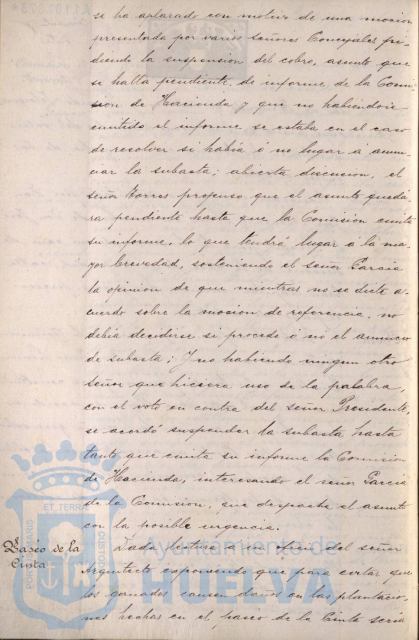 se ha aplazado con motivo de una moción
presentada por varios señores Concejales pi-
diendo la suspensión del cobro, asunto que
se halla pendiente de informe de la Comi-
sion de Hacienda y que no habiéndose
emitido el informe se estaba en el caso
de resolver si había ó no lugar á anun-
ciar la subasta; abierta discusion, el
señor Torres propuso que el asunto queda-
ra pendiente hasta que la Comision emita
su informe, lo que tendrá lugar á la ma-
yor brevedad, sosteniendo el señor Garcia
la opinion de que mientras no se dicte a-
cuerdo sobre la mocion de referencia, no
debia decidirse si procede ó no el anuncio
de subasta; Y no habiendo ningun otro
señor que hiciera uso de la palabra,
con el voto en contra del señor Presidente
se acordó suspender la subasta hasta
tanto que emita su informe la Comision
de Hacienda, interesando el señor Garcia
de la Comision, que despache el asunto
con la posible urgencia.
Paseo de la
Cinta
Dada lectura á un oficio del señor
Arquitecto exponiendo que para evitar que
los ganados causen daños en las plantacio-
nes hechas en el paseo de la Cinta sería
Ayuntamiento de
HUELVA
PORTUS MARIS
ET TERRAE
CUSTODIA